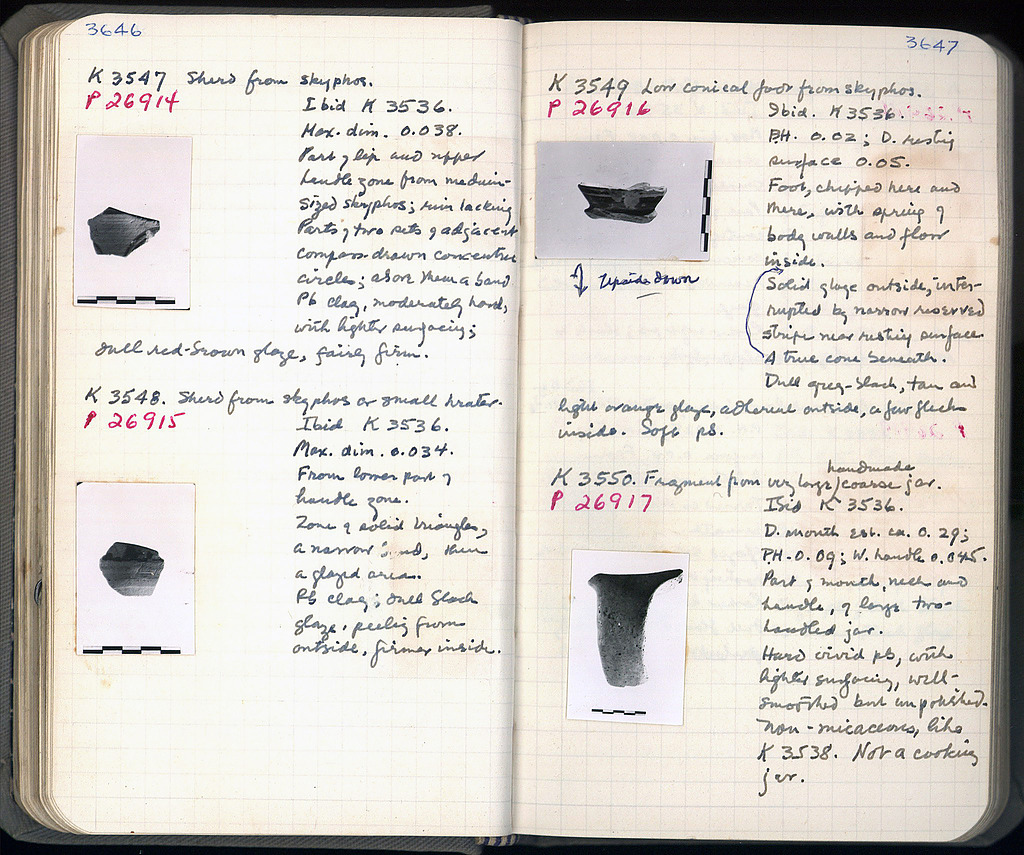 3646
K 3547 Sherd from skyphos.
P 26914
Ibid K 3536.
Max. dim. 0.038.
Part of lip and upper
handle zone from medium-
sized skyphos; rim lacking
Parts of two sets of adjacent
compass-drawn concentric
circles; above them a band
Pb clay, moderately hard,
with lighter surfacing;
dull red-brown glaze, fairly firm.
K 3548. Sherd from skyphos or small krater.
P 26915
Ibid K 3536.
Max. dim. 0.034.
From lower part of
handle zone.
Zone of solid triangles,
a narrow band, then
a glazed area.
Pb clay; dull black
glaze, peeling from
outside, firmer inside.
3647
K 3549 Low conical foot from skyphos.
P 26916
Ibid. K 3536.
P.H. 0.02; D. resting
surface 0.05.
Foot, chipped here and
there, with spring of
body walls and floor
inside.
Upside down
Solid glaze outside, inter-
rupted by narrow reserved
stripe near resting surface
A true cone beneath.
Dull grey-black, tan and
light orange glaze, adherent outside, a few flecks
inside. Soft pb.
handmade
K 3550. Fragment from very large/coarse jar.
P 26917
Ibid K 3536.
D. mouth est. ca. 0.29;
P.H. 0.09; W. handle 0.045.
Part of mouth, neck and
handle, of large two-
handled jar.
Hard vivid pb, with
lighter surfacing, well-
smoothed but unpolished.
Non-micaceous, like
K 3538. Not a cooking
jar.